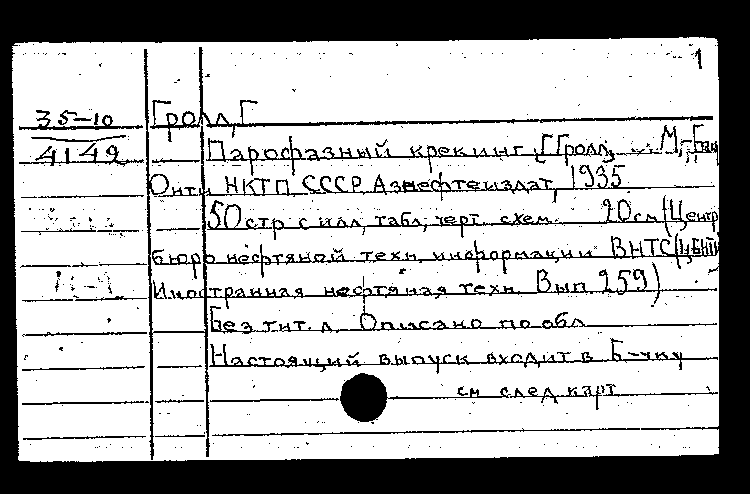 1
35-10 Гролл, Г
41-42 Парофазный крекинг. [Г Гролл, ... М.,-Баку
Онти НКТП СССР Азнефтеиздат, 1935.
50 стр с илл, табл, черт. схем. 20 см (Центр
бюро нефтяной техн. информации ВНТС (ЦБНТИ
Иностранная нефтяная техн. Вып 259)
Без тит. л. Описано по обл
Настоящий выпуск входит в Б-чку
см след карт